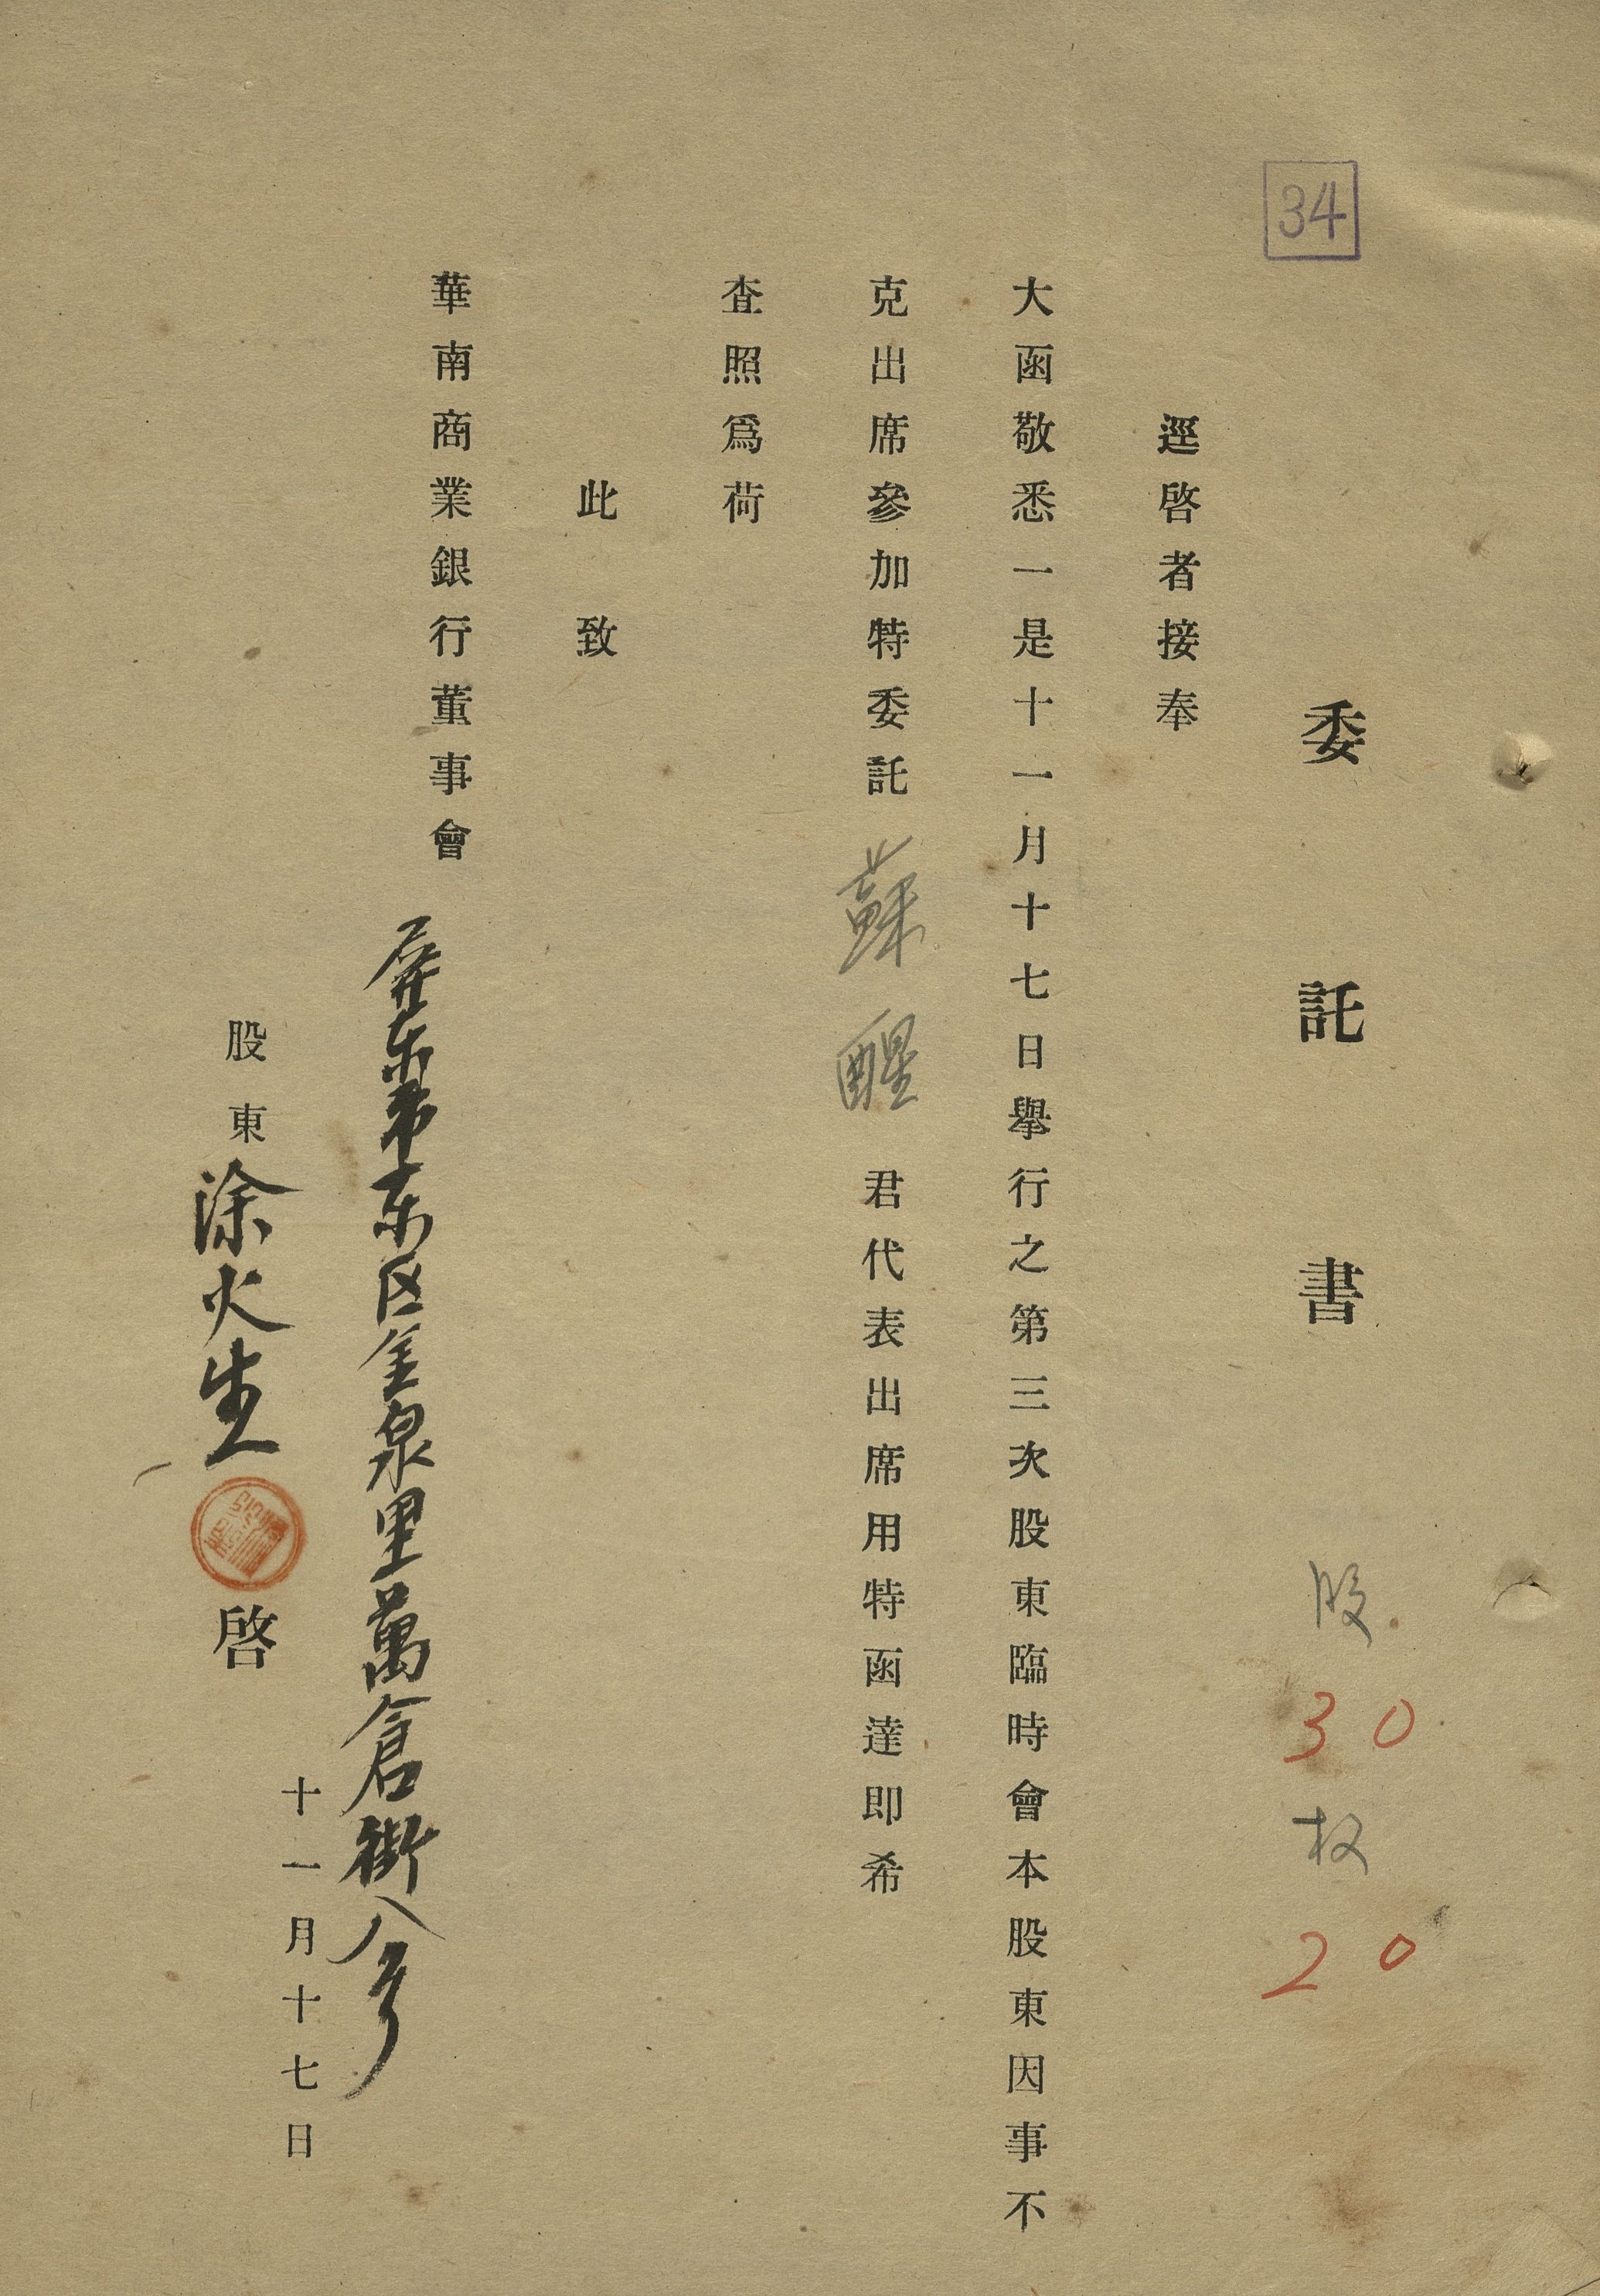 34
委託書
股 30 权 20
逕啓者接奉
大函敬悉一是十一月十七日舉行之第三次股東臨時會本股東因事不
克出席參加特委託蘇醒君代表出席用特函達即希
查照爲荷
此致
華南商業銀行董事會
屏東市东区金泉里萬倉街八号
十一月十七日
股東涂火生啓